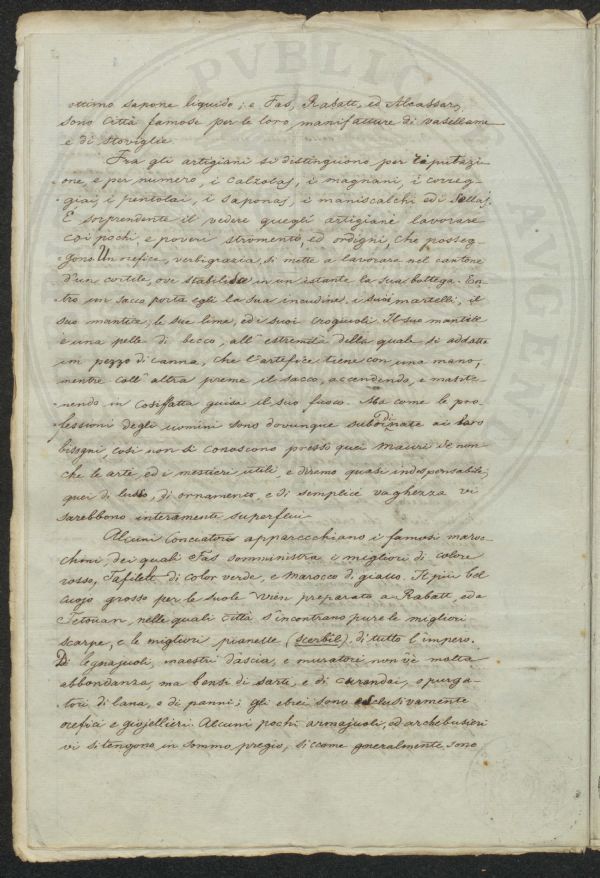 ottimo sapone liquido; e Fas, Rabatt, ed Alcassar,
sono Città famose per le loro manifatture di vasellame
e di stoviglie
Fra gli artigiani si distinguono per riputazi-
one, e per numero, i Calzolaj, i magnani, i correg-
giai, i pentolai, i Saponaj, i maniscalchi ed i Sellaj.
E' sorprendente il vedere quegli artigiani lavorare
coi pochi, e poveri stromenti, ed ordigni, che posseg-
gono. Un orefice, verbigrazia, si mette a lavorare nel cantone
d'un cortile, ove stabilisce in un istante la sua bottega. En-
tro un sacco porta egli la sua incudine, i suoi martelli, il
suo mantice, le sue lime, ed i suoi croqiuoli. Il suo mantice
è una pelle di becco, all'estremità della quale si adatta
un pezzo di canna, che l'artefice tiene con una mano,
mentre coll'altra preme il sacco, accendendo, e mante-
nendo in cosiffatta guisa il suo fuoco. Ma come le pro-
fessioni degli uomini sono dovunque subordinate ai loro
bisogni, così non si conoscono presso quei Mauri se non
che le arti, ed i mestieri utili, e diremo quasi indispensabili;
quei di lusso, di ornamento, e di semplice vaghezza vi
sarebbono interamente superflui
Alcuni Conciatori apparecchiano i famosi maroc-
chini, dei quali Fas somministra i migliori di colore
rosso, Tafilelt di color verde, e Marocco di giallo. Il più bel
cuojo grosso per le suole vien preparato a Rabatt, ed a
Tetouan, nelle quali Città s'incontrano pure le migliori
scarpe, e le migliori pianelle (scerbil) di tutto l'impero.
Di legnajuoli, maestri d'ascia, e muratori non v'è molta
abbondanza, ma bensì di sarti, e di curandai, o purga-
tori di lana, e di panni; gli ebrei sono esclusivamente
orefici e giojellieri. Alcuni pochi armajuoli, ed archebusieri
vi si tengono in sommo pregio, siccome generalmente sono
PVBLIC